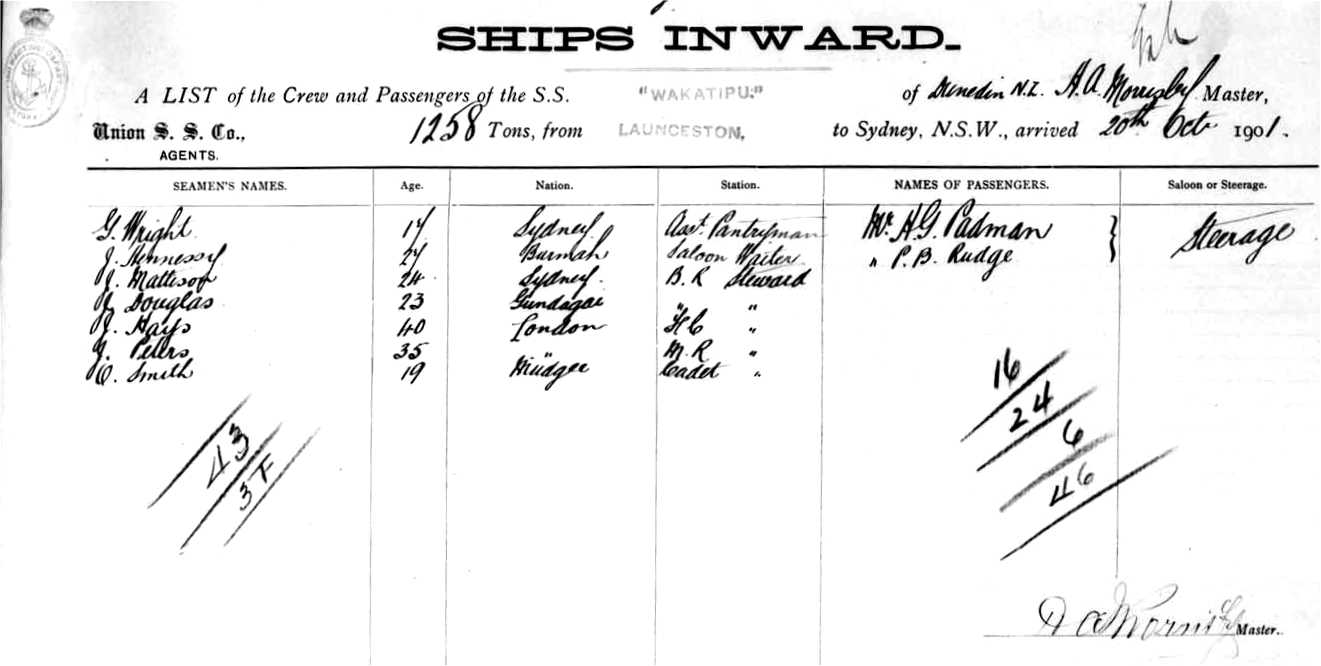 SHIPS INWARD.
A LIST of the Crew and Passengers of the S.S. "WAKATIPU." of Dunedin N.Z. H. A. Morrisby Master,
Union S. S. Co., AGENTS. 1258 Tons, from LAUNCESTON, to Sydney, N.S.W., arrived 20th Octr 1901.
SEAMEN'S NAMES. Age. Nation. Station. NAMES OF PASSENGERS. Saloon or Steerage.
G. Wright 17 Sydney Asst. Pantryman Mr. H. G. Padman } Steerage
J. Hennessy 27 Burmah Saloon Waiter " P. B. Rudge
J. Mattison 24 Sydney B. R Steward
J. Douglas 23 Gundagai " "
J. Hays 40 London F C "
J. Peters 35 " M. R "
C. Smith 19 Mudgee Cadet "
16
24
6
46
43
3 F
H A Morrisby Master.